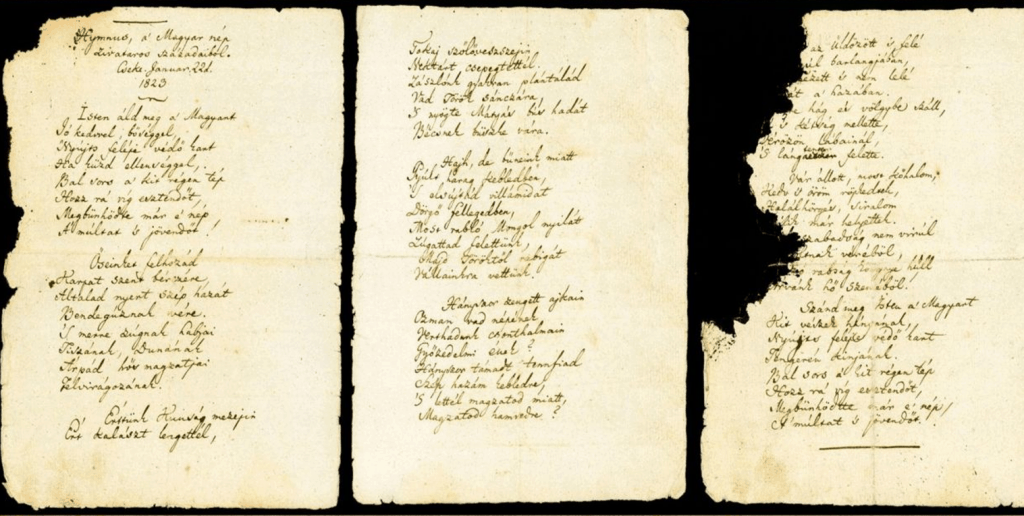 Hymnus, a' Magyar nép
zivataros századaiból.
Cseke. Januar. 22d.
1823
Isten áld meg a' Magyart
Jó kedvvel, bőséggel,
Nyújts feléje védő kart
Ha küzd ellenséggel,
Bal sors a' kit régen tép
Hozz rá víg esztendőt,
Megbűnhődte már e' nép
A' múltat 's jövendőt!
Őseinket felhozád
Kárpát szent bérczére,
Általad nyert szép hazát
Bendegúznak vére.
'S merre zúgnak habjai
Tiszának, Dunának
Árpád hős magzatjai
Felvirágozának.
Értünk Kunság mezején
Ért kalászt lengettél,
Tokaj szőlővesszején
Nektárt csepegtettél.
Zászlónk gyakran plántálád
Vad Török sánczára,
'S nyögte Mátyás bús hadát
Bécsnek büszke vára.
Hajh, de bűneink miatt
Gyúlt harag kebledben,
'S elsújtád villámidat
Dörgő fellegedben,
Most rabló Mongol nyilát
Zúgattad felettünk,
Majd Töröktől rabigát
Vállainkra vettünk.
Hányszor zengett ajkain
Ozman vad népének
Vert hadunk csonthalmain
Győzedelmi ének?
Hányszor támadt tennfiad
Szép hazám kebledre,
'S lettél magzatod miatt,
Magzatod hamvedre?
az üldözött 's felé
barlangjában,
nézett 's nem lelé
a' hazában.
hág és völgybe száll,
's kétség mellette,
Vérözön lábainál,
'S lángtenger felette.
Vár állott, most kőhalom,
Kedv 's öröm röpkedtek,
Halálhörgés, siralom
már helyettek.
szabadság nem virúl
véréből,
rabság könnye hull
hő szeméből.
Szánd meg Isten a' Magyart
Kit vészek hányának,
Nyújts feléje védő kart
Tengerén kínjának.
Bal sors a' kit régen tép
Hozz rá víg esztendőt,
Megbűnhődte már e' nép
A' múltat 's jövendőt.